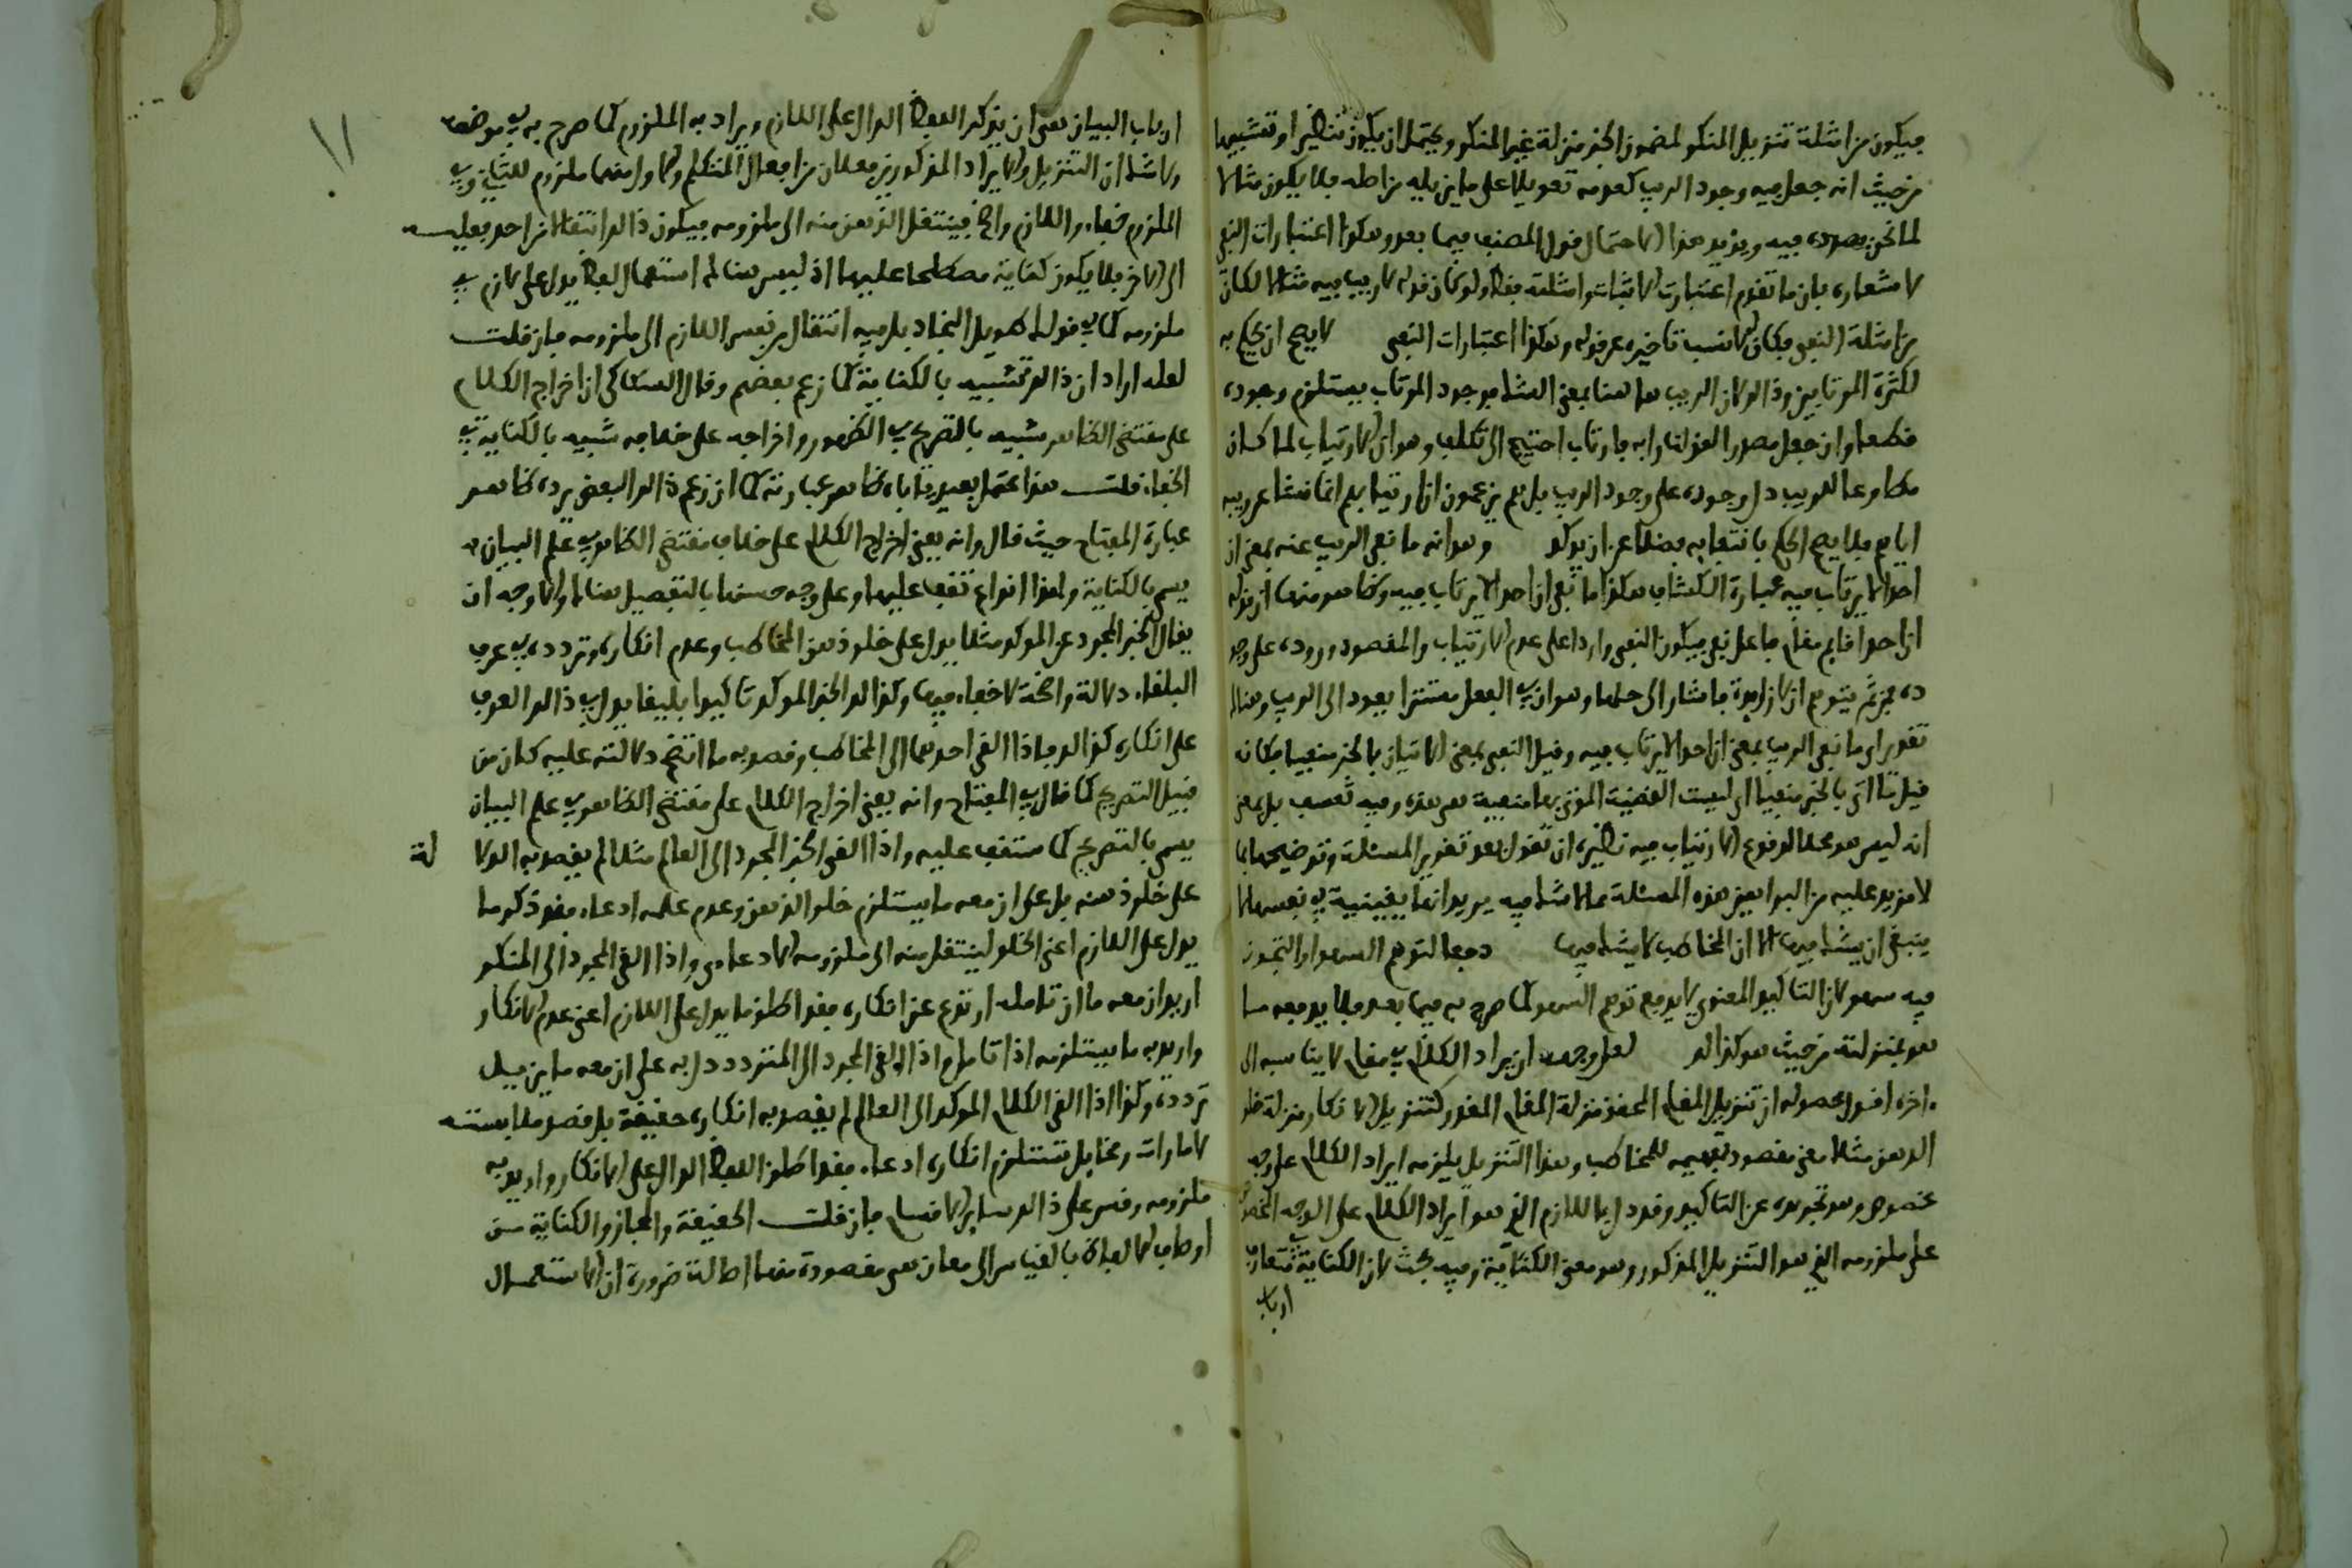 فيكون من امثلة تنزيل المنكر لمضمون الخبر منزلة غير المنكر ويحتمل ان يكون تنظيرا وتشبيها
من حيث انه جعل فيه وجود الريب كعدمه تعويلا على ما يزيله من اصله فلا يكون مثالا
لما نحن بصدده فيه ويؤيد هذا الاحتمال قول المصنف فيما بعد وهكذا اعتبارات النفي
لاشعاره بان ما تقدم اعتبارات الاثبات وامثلته فقط ولو كان قوله لا ريب فيه مثالا لكان
من امثلة النفي فكان الانسب تاخيره عن قوله وهكذا اعتبارات النفي لا يصح ان يحكم به
لكثرة المرتابين وذالك لان الريب ها هنا بمعنى الشك فوجود المرتاب يستلزم وجوده
قطعا وان جعل مصدر القولك رابه فارتاب احتيج الى تكلف وهو ان الارتياب لما كان
مطاوعا للريب دل وجوده على وجود الريب بل هم يزعمون ان ارتيابهم انما نشا عن ريبه
اياهم فلا يصح الحكم بانتفايه فضلا عن ان يوكد وهو انه ما نفى الريب عنه بمعنى ان
احدا لا يرتاب فيه عبارة الكشاف هكذا ما نفى ان احدا لا يرتاب فيه وظاهر منها ان قوله
ان احدا قايم مقام فاعل نفي فيكون النفي واردا على عدم الارتياب والمقصود وروده على وجو
ده فمن ثم يتوهم ان لا زايدة فاشار الى حلها وهو ان في الفعل مستترا يعود الى الريب وهناك
تقدير اي ما نفى الريب بمعنى ان احدا لا يرتاب فيه وقيل النفي بمعنى الاتيان بالخبر منفيا فكانه
قيل ما اتى بالخبر منفيا اي ليست القضية المؤتى بها منفية هي هذه وفيه تعسف بل معنى
انه ليس هو محلا لوقوع الارتياب فيه نظيره ان تقول بعد تقرير المسئلة وتوضيحها بما
لا مزيد عليه من البراهين هذه المسئلة مما لا شك فيه يريد انها يقينية في نفسها لا
ينبغي ان يشك فيها لا ان المخاطب لا يشك فيها دفعا لتوهم السهو او التجوز
فيه سهو لان التاكيد المعنوي لا يدفع توهم السهو كما صرح به فيما بعد فلا يدفعه ما
هو بمنزلته من حيث هو كذالك لعل وجهه ان يراد الكلام في مقام لا يناسبه الى
اخره اقول محصوله ان تنزيل المقام المحقق منزلة المقام المقدر كتنزيل الانكار منزلة خلو
الذهن مثلا معنى مقصود تفهيمه للمخاطب وهذا التنزيل يلزمه ايراد الكلام على وجه
مخصوص وهو تجريده عن التاكيد وقد دل بها اللازم الذي هو ايراد الكلام على الوجه المخصوص
على ملزومه الذي هو التنزيل المذكور وهو معنى الكناية وفيه بحث لان الكناية في متعارف
ارباب
ارباب البيان هي ان يذكر اللفظ الدال على اللازم ويراد به الملزوم كما صرح به في موضعه
ولا شك ان التنزيل والايراد المذكورين فعلان من افعال المتكلم والاول منهما ملزوم للثاني وفي
الملزوم خفاء واللازم واضح فينتقل الذهن منه الى ملزومه فيكون ذالك انتقالا من احد فعليه
الى الاخر فلا يكون كناية مصطلحا عليها اذ ليس هناك استعمال لفظ يدل على لازم في
ملزومه كما في قولك طويل النجاد بل فيه انتقال من نفس اللازم الى ملزومه فان قلت
لعله اراد ان ذالك تشبيه بالكناية كما زعم بعضهم وقال السكاكي ان اخراج الكلام
على مقتضى الظاهر شبيه بالتصريح في الظهور واخراجه على خلافه شبيه بالكناية في
الخفاء قلت هذا محتمل بعيد يتاباه ظاهر عبارته كما ان زعم ذالك البعض يرده ظاهر
عبارة المفتاح حيث قال وانه يعني اخراج الكلام على خلاف مقتضى الظاهر في علم البيان
يسمى بالكناية ولهذا انواع تقف عليها وعلى وجه حسنها بالتفصيل هناك والاوجه ان
يقال الخبر المجرد عن الموكد مثلا يدل على خلو ذهن المخاطب وعدم انكاره وتردده في عرف
البلغاء دلالة واضحة لا خفاء فيها وكذا لك الخبر الموكد تاكيدا بليغا يدل في ذالك العرف
على انكاره كذالك فاذا القي احدهما الى المخاطب وقصد به ما اتضح دلالته عليه كان من
قبيل التصريح كما قال في المفتاح وانه يعني اخراج الكلام على مقتضى الظاهر في علم البيان
يسمى بالتصريح كما ستقف عليه واذا القي الخبر المجرد الى العالم مثلا لم يقصد به الدلا لة
على خلو ذهنه بل على ان معه ما يستلزم خلو الذهن وعدم علمه ادعاء فقد ذكر ما
يدل على اللازم اعني الخلو لينتقل منه الى ملزومه الادعاءي واذا القي المجرد الى المنكر
اريد ان معه ما ان تامله ارتدع عن انكاره فقد اطلق ما يدل على اللازم اعني عدم الانكار
واريد به ما يستلزمه اذا تامل واذا القي المجرد الى المتردد دل به على ان معه ما يزيل
تردده وكذا اذا القي الكلام الموكد الى العالم لم يقصد به انكاره حقيقة بل قصد ملابسته
لامارات ومخايل تستلزم انكاره ادعاء فقد اطلق اللفظ الدال على الانكار واريد به
ملزومه وقس على ذالك ساير الاقسام فان قلت الحقيقة والمجاز والكناية من
اوصاف الالفاظ بالقياس الى معان هي مقصودة منها اصالة ضرورة ان الاستعمال